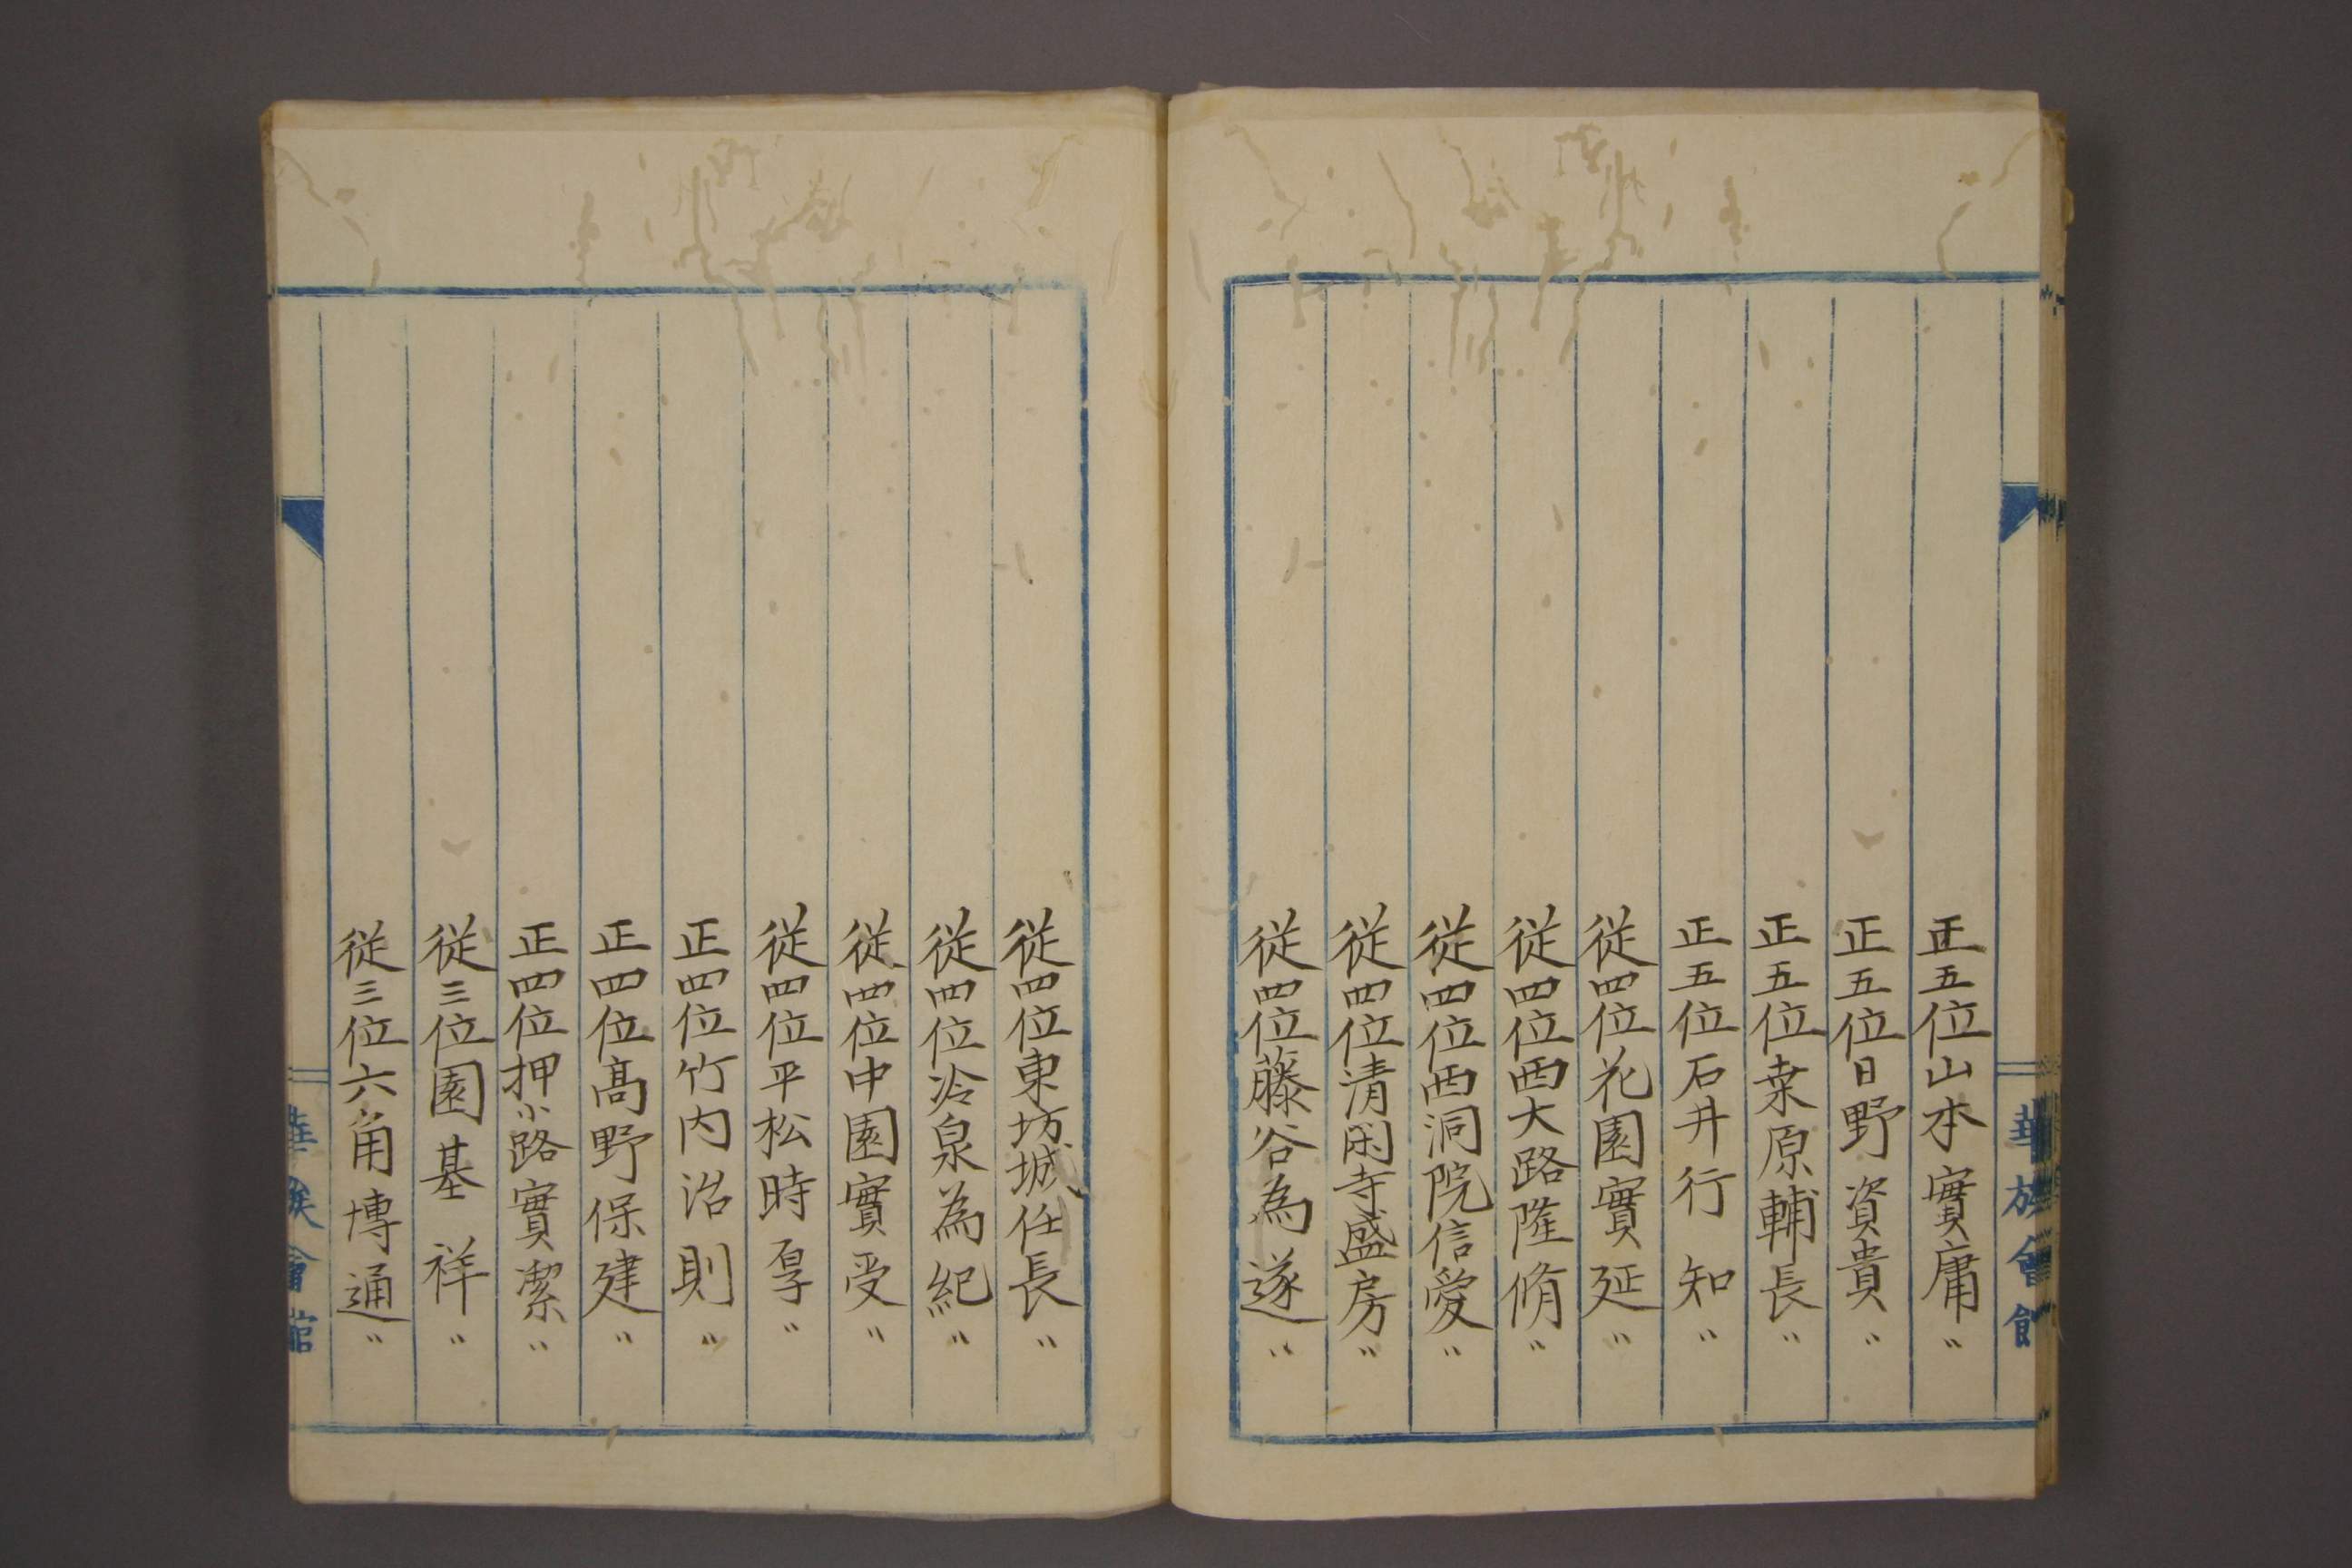 正五位山本實庸〃
正五位日野資貴〃
正五位桒原輔長〃
正五位石井行知〃
從四位花園實延〃
從四位西大路隆脩〃
從四位西洞院信愛〃
從四位清閑寺盛房〃
從四位藤谷為遂〃
華族會館
從四位東坊城任長〃
從四位冷泉為紀〃
從四位中園實受〃
從四位平松時厚〃
正四位竹内治則〃
正四位髙野保建〃
正四位押小路實潔〃
從三位園基祥〃
從三位六角博通〃
華族會館